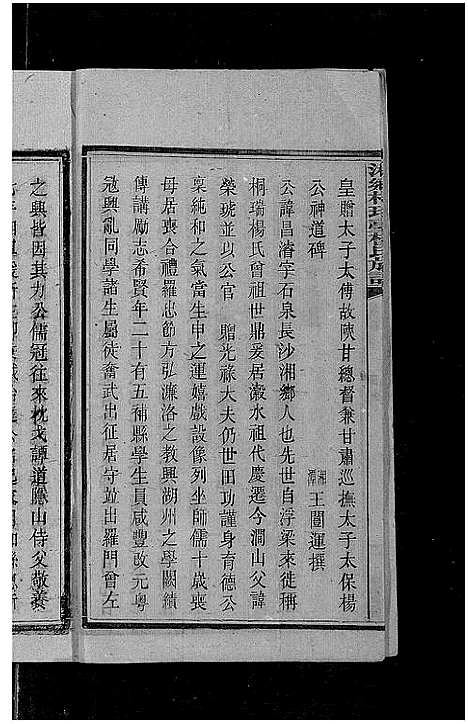 皇贈太子太傅故陝甘總督兼甘肅巡撫太子太保楊
公神道碑
湘潭王闓運撰
公諱昌濬字石泉長沙湘鄉人也先世自浮梁來徙稱
桐瑞楊氏曾祖世鼎爰居漵水祖代慶遷今澗山父諱
榮琥並以公官 贈光祿大夫仍世田功謹身育德公
稟純和之氣當生申之運嬉戲設像列坐師儒十歲喪
母居喪合禮羅忠節方弘濂洛之教興湖州之學闕績
傳講勵志希賢年二十有五補縣學生員咸豐改元粵
冦興亂同學諸生屬徒奮武出征居守並出羅門曾左
之興皆因其力公儒冠往來枕戈譚道勝山侍父敬養